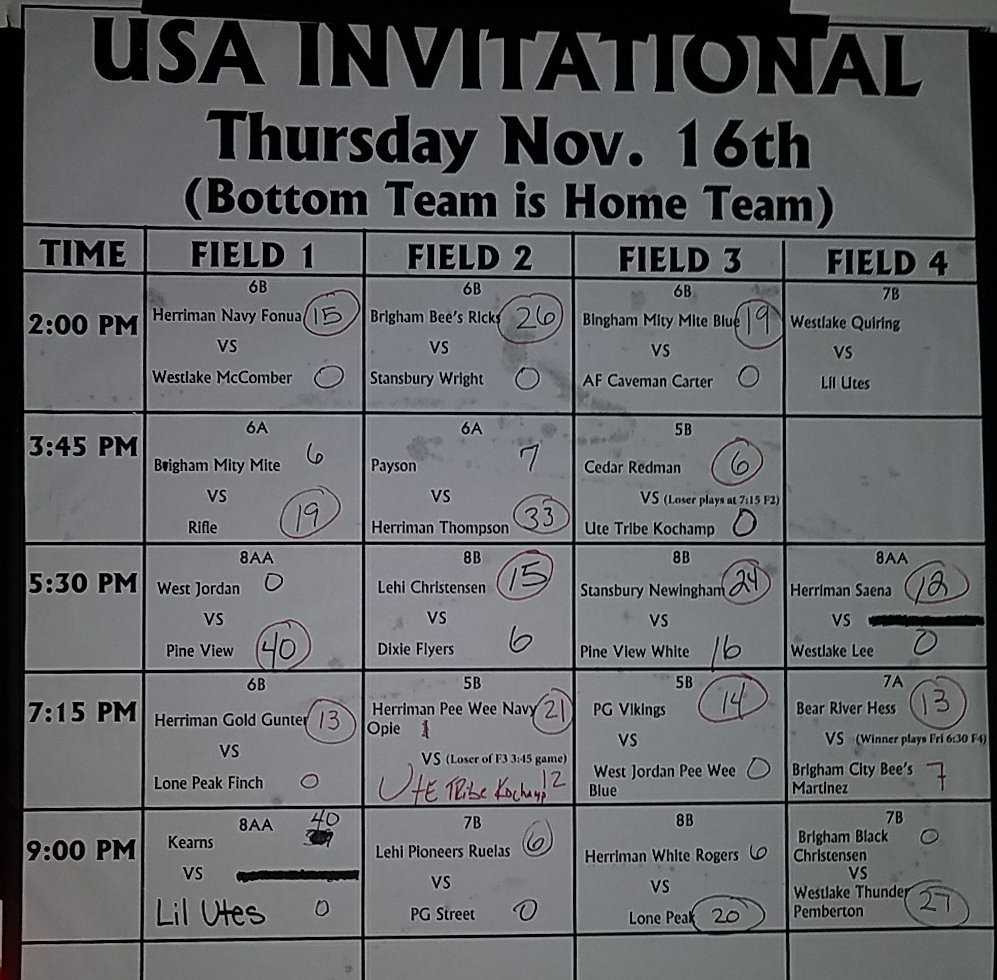 USA INVITATIONAL
Thursday Nov. 16th
(Bottom Team is Home Team)
TIME FIELD 1 FIELD 2 FIELD 3 FIELD 4
2:00 PM
6B
Herriman Navy Fonua 15
VS
Westlake McComber 0
6B
Brigham Bee's Ricks 26
VS
Stansbury Wright 0
6B
Bingham Mity Mite Blue 19
VS
AF Caveman Carter 0
7B
Westlake Quiring
VS
Lil Utes
3:45 PM
6A
Brigham Mity Mite 6
VS
Rifle 19
6A
Payson 7
VS
Herriman Thompson 33
5B
Cedar Redman 6
VS (Loser plays at 7:15 F2)
Ute Tribe Kochamp 0
5:30 PM
8AA
West Jordan 0
VS
Pine View 40
8B
Lehi Christensen 15
VS
Dixie Flyers 6
8B
Stansbury Newingham 24
VS
Pine View White 16
8AA
Herriman Saena 12
VS
Westlake Lee 0
7:15 PM
6B
Herriman Gold Gunter 13
VS
Lone Peak Finch 0
5B
Herriman Pee Wee Navy 21
Opie
VS (Loser of F3 3:45 game)
UtE TRibe Kochamp 12
5B
PG Vikings 14
VS
West Jordan Pee Wee 0
Blue
7A
Bear River Hess 13
VS (Winner plays Fri 6:30 F4)
Brigham City Bee's 7
Martinez
9:00 PM
8AA 40
Kearns
VS
Lil Utes 0
7B
Lehi Pioneers Ruelas 6
VS
PG Street 0
8B
Herriman White Rogers 6
VS
Lone Peak 20
7B
Brigham Black 0
Christensen
VS
Westlake Thunder 27
Pemberton